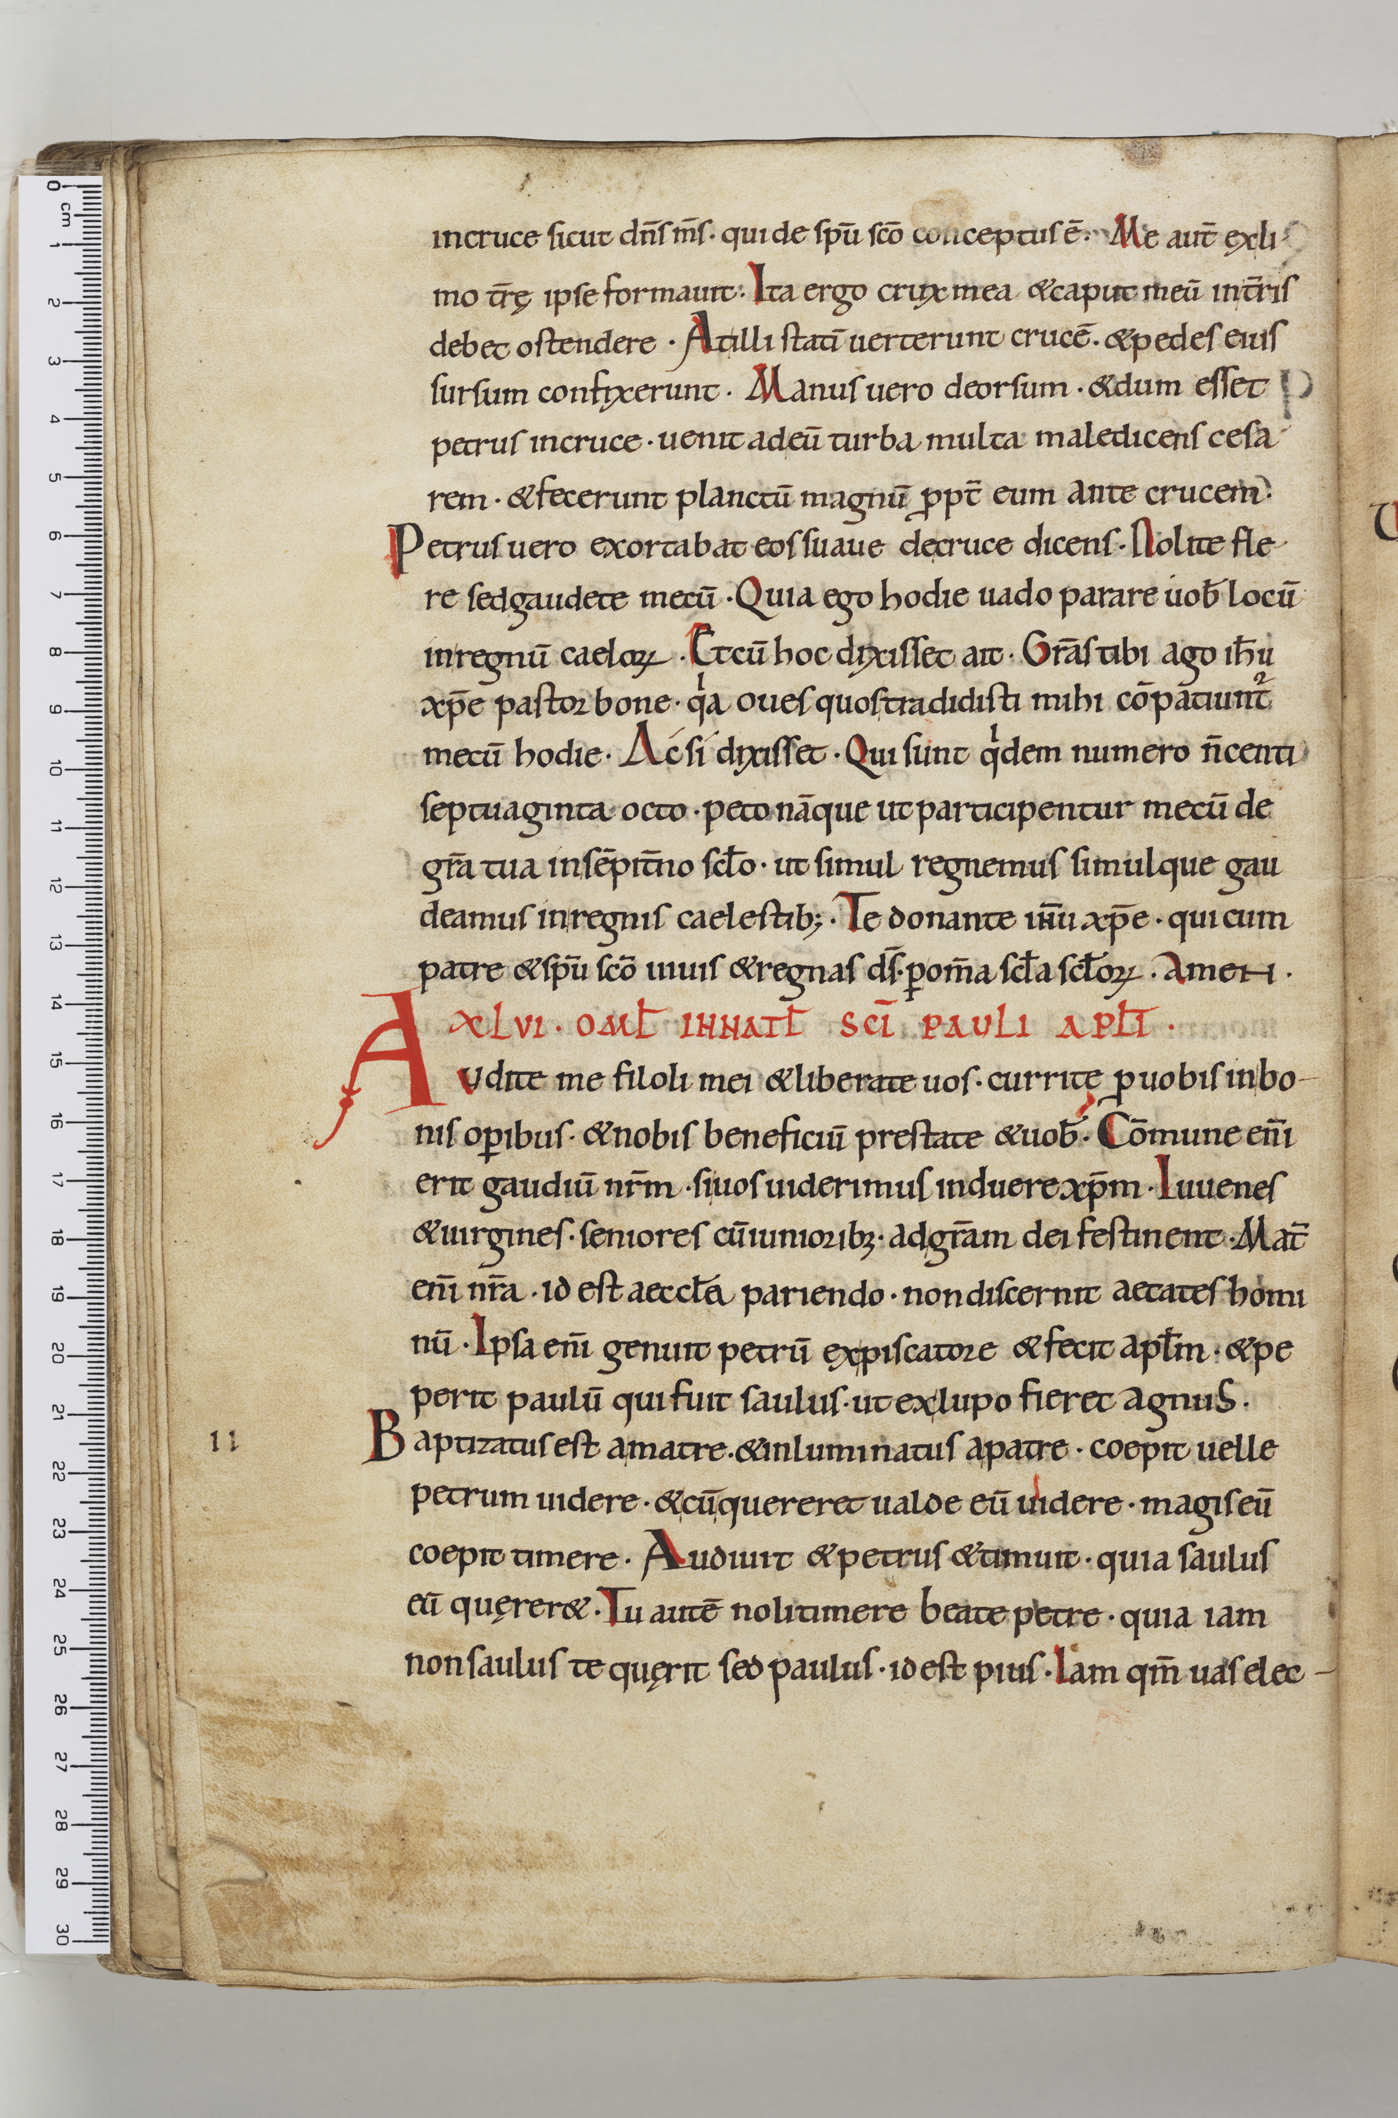 incruce sicut dn̄s m̄s · qui de sp̄u sc̄o conceptus ē · Me aut̄ exli
mo t̄rę ipse formauit · Ita ergo crux mea & caput meū int̄ris
debet ostendere · At illi statī uerterunt crucē · & pedes eius
sursum confixerunt · Manus uero deorsum · & dum esset
petrus incruce · uenit adeū turba multa maledicens cesa
rem · & fecerunt planctū magnū ꝓpt̄ eum ante crucem ·
Petrus uero exortabat eos suaue decruce dicens · Nolite fle
re sed gaudete mecū · Quia ego hodie uado parare uob̄ locū
inregnū caeloꝝ · Et cū hoc dixisset ait · Grās tibi ago ih̄u
xp̄e pastor bone · qͥa oues quos tradidisti mihi cōpatiunt᷑
mecū hodie · Ac si dixisset · Qui sunt qͥdem numero n̄centi
septuaginta octo · peto nāque ut participentur mecū de
gr̄a tua insēpit̄no scƚo · ut simul regnemus simulque gau
deamus inregnis caelestibꝫ · Te donante ih̄u xp̄e · qui cum
patre & sp̄u sc̄o uiuis & regnas ds̄ · ꝑ om̄a scƚa scƚoꝝ · Amen ·
XLVI · OMƚ INNATƚ SC̄I PAULI APƚI ·
Audite me filoli mei & liberate uos · currite ꝓ uobis inbo-
nis oꝑibus · & nobis beneficiū prestate & uob̄ · Cōmune en̄i
erit gaudiū nr̄m · si uos uiderimus induere xp̄m · Iuuenes
& uirgines · seniores cū iunioribꝫ · ad gr̄am dei festinent · Mat̄
en̄i nr̄a · id est aeccƚa pariendo · non discernit aetates homi
nū · Ipsa en̄i genuit petrū expiscatore & fecit apƚm · & pe
perit paulū qui fuit saulus · ut exlupo fieret agnus ·
11
Baptizatus est amatre · & inluminatus apatre · coepit uelle
petrum uidere · & cū quereret ualde eū uidere · magis eū
coepit timere · Audiuit & petrus & timuit · quia saulus
eū quęrer& · Tu autē noli timere beate petre · quia iam
non saulus te quęrit sed paulus · id est pius · Iam qm̄ uas elec-